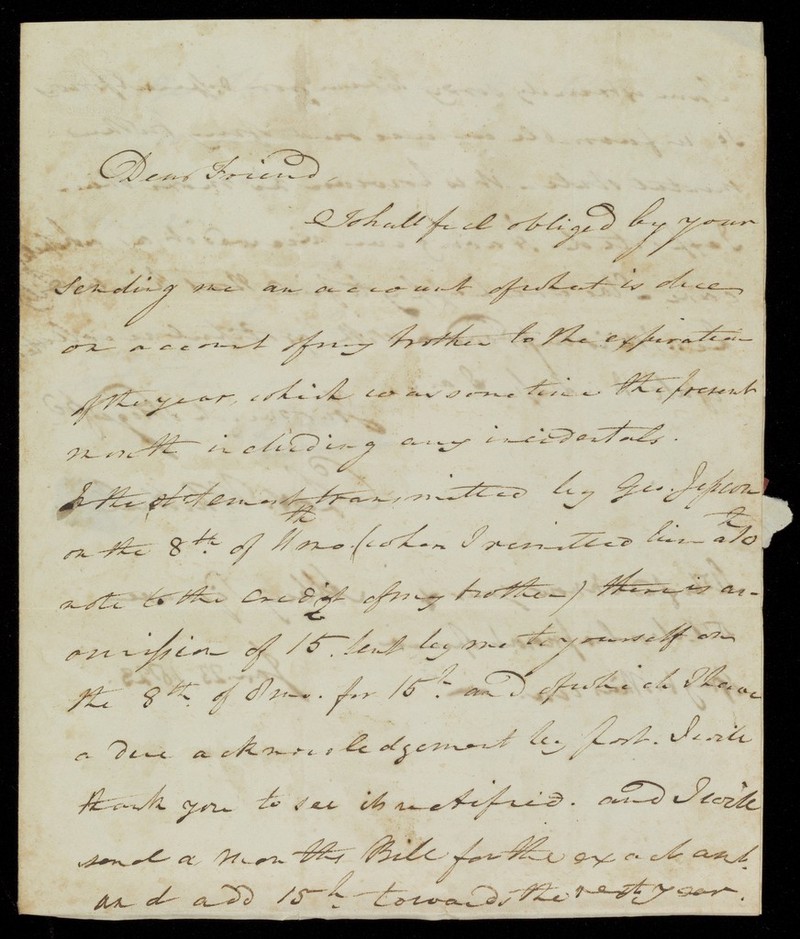 Dear Friend,
I shall feel obliged by your
sending me an account of what is due
on account of my brother to the expiration
of the year, which was sometime the present
month including any incidentals.
In the statement transmitted by Geo. Jepson
on the 8th. of 11th mo. (when I remitted him a £10
note to the credit of my brother) there is an
omission of 15. sent by me to yourself on
the 8th. of 8 mo. for 15£ and of which I have
a due acknowledgement by post. I will
thank you to see it rectified. and I will
send a months Bill for the exact amt.
and add 15£ towards the next year.